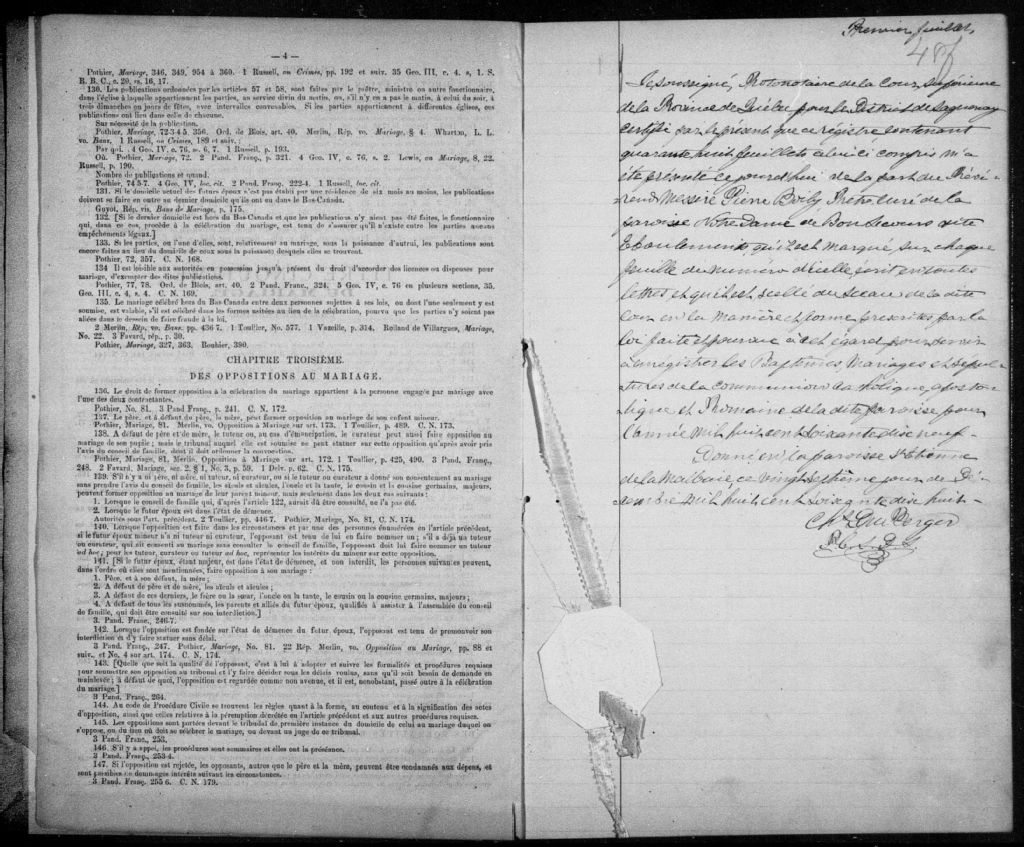 — 4 —
Pothier, Mariage, 346, 349, 954 à 360. 1 Russell, on Crimes, pp. 192 et suiv. 35 Geo. III, c. 4. s, 1. S.
R. B. C., c. 20, ss. 16, 17.
130. Les publications ordonnées par les articles 57 et 58, sont faites par le prêtre, ministre ou autre fonctionnaire,
dans l'église à laquelle appartiennent les parties, au service divin du matin, ou, s'il n'y en a pas le matin, à celui du soir, à
trois dimanches ou jours de fêtes, avec intervalles convenables. Si les parties appartiennent à différentes églises, ces
publications ont lieu dans celle de chacune.
Sur nécessité de la publication.
Pothier, Mariage, 72-3-4-5, 356. Ord. de Blois, art. 40. Merlin, Rép. vo. Mariage, § 4. Wharton, L. L.
vo. Bans. 1 Russell, on Crimes, 189 et suiv. ;
Par qui. 4 Geo. IV, c. 76, ss. 6, 7. 1 Russell, p. 193.
Où. Pothier, Mariage, 72. 2 Pand. Franç., p. 321. 4 Geo. IV, c. 76, s. 2. Lewis, on Mariage, 8, 22.
Russell, p. 190.
Nombre de publications et quand.
Pothier, 74 5-7. 4 Geo, IV, loc. cit. 2 Pand. Franç. 222-4. 1 Russell, loc. cit.
131. Si le domicile actuel des futurs époux n'est pas établi par une résidence de six mois au moins, les publications
doivent se faire en outre au dernier domicile qu'ils ont eu dans le Bas-Canada.
Guyot, Rép. vis. Bans de Mariage, p. 175.
132. [Si le dernier domicile est hors du Bas-Canada et que les publications n'y aient pas été faites, le fonctionnaire
qui, dans ce cas, procède à la célébration du mariage, est tenu de s'assurer qu'il n'existe entre les parties aucuns
empêchements légaux.]
133. Si les parties, ou l'une d'elles, sont, relativement au mariage, sous la puissance d'autrui, les publications sont
encore faites au lieu du domicile de ceux sous la puissance desquels elles se trouvent.
Pothier, 72, 357. C. N. 168.
134 Il est loisible aux autorités en possession jusqu'à présent du droit d'accorder des licences ou dispenses pour
mariage, d'exempter des dites publications.
Pothier, 77, 78. Ord. de Blois, art. 40. 2 Pand. Franc., 324. 5 Geo. IV, c. 76 en plusieurs sections, 35.
Geo. III, c. 4, s. 4. C. N. 169.
135. Le mariage célébré hors du Bas-Canada entre deux personnes sujettes à ses lois, ou dont l'une seulement y est
soumise, est valable, s'il est célébré dans les formes usitées au lieu de la célébration, pourvu que les parties n'y soient pas
allées dans le dessein de faire fraude à la loi.
2 Merlin, Rép. vo. Bans. pp. 436 7. 1 Toullier, No. 577. 1 Vazeille, p. 314, Rolland de Villargues, Mariage,
No. 22. 3 Favard, rép., p. 30.
Pothier, Mariage, 327, 363. Bouhier, 390.
CHAPITRE TROISIÈME.
DES OPPOSITIONS AU MARIAGE.
136. Le droit de former opposition à la célébration du mariage appartient à la personne engagée par mariage avec
l'une des deux contractantes.
Pothier, No. 81. 3 Pand Franç., p. 241. C. N. 172.
137. Le père, et à défaut du père, la mère, peut former opposition au mariage de son enfant mineur.
Pothier, Mariage, 81. Merlin, vo. Opposition à Mariage sur art. 173. 1 Toullier, p. 489. C. N. 173.
138. A défaut de père et de mère, le tuteur ou, au cas d'émancipation, le curateur peut aussi faire opposition au
mariage de son pupile ; mais le tribunal auquel elle est soumise ne peut statuer sur cette opposition qu'après avoir pris
l'avis du conseil de famille, dont il doit ordonner la convocation.
Pothier, Mariage, 81, Merlin, Opposition à Mariage sur art. 172. 1 Toullier, p. 425, 490. 3 Pand. Franç.,
248. 2 Favard, Mariage, sec. 2, § 1, No. 3, p. 59. 1 Delv. p. 62. C. N. 175.
139. S'il n'y a ni père, ni mère, ni tuteur, ni curateur, ou si le tuteur ou curateur a donné son consentement au mariage
sans prendre l'avis du conseil de famille, les aïeuls et aïeules, l'oncle et la tante, le cousin et la cousine germains, majeurs,
peuvent former opposition au mariage de leur parent mineur, mais seulement dans les deux cas suivants :
1. Lorsque le conseil de famille qui, d'après l'article 122, aurait dû être consulté, ne l'a pas été.
2. Lorsque le futur époux est dans l'état de démence.
Autorités sous l'art. précédent. 2 Toullier, pp. 446-7. Pothier, Mariage, No. 81, C. N. 174.
140. Lorsque l'opposition est faite dans les circonstances et par une des personnes énumérées en l'article précédent,
si le futur époux mineur n'a ni tuteur ni curateur, l'opposant est tenu de lui en faire nommer un ; s'il a déjà un tuteur
ou curateur, qui ait consenti au mariage sans consulter le conseil de famille, l'opposant doit lui faire nommer un tuteur
ad hoc ; pour les tuteur, curateur ou tuteur ad hoc, représenter les intérêts du mineur sur cette opposition.
141. [Si le futur époux, étant majeur, est dans l'état de démence, et non interdit, les personnes suivantes peuvent,
dans l'ordre où elles sont mentionnées, faire opposition à son mariage :
1. Père, et à son défaut, la mère ;
2. A défaut de père et de mère, les aïeuls et aïeules ;
3. A défaut de ces derniers, le frère ou la sœur, l'oncle ou la tante, le cousin ou la cousine germains, majeurs ;
4. A défaut de tous les susnommés, les parents et alliés du futur époux, qualifiés à assister à l'assemblée du conseil
de famille, qui doit être consulté sur son interdiction.]
3. Pand. Franç., 246-7.
142. Lorsque l'opposition est fondée sur l'état de démence du futur époux, l'opposant est tenu de promouvoir son
interdiction et d'y faire statuer sans délai.
3 Pand. Franç., 247. Pothier, Mariage, No. 81. 22 Rép. Merlin, vo. Opposition au Mariage, pp. 88 et
suiv., et No. 4 sur art. 174. C. N. 174.
143. [Quelle que soit la qualité de l'opposant, c'est à lui à adopter et suivre les formalités et procédures requises
pour soumettre son opposition au tribunal et l'y faire décider sous les délais voulus, sans qu'il soit besoin de demande en
mainlevée ; à défaut de quoi, l'opposition est regardée comme non avenue, et il est, nonobstant, passé outre à la célébration
du mariage.]
3 Pand. Franç., 264.
144. Au code de Procédure Civile se trouvent les règles quant à la forme, au contenu et à la signification des actes
d'opposition, ainsi que celles relatives à la péremption décrétée en l'article précédent et aux autres procédures requises.
145. Les oppositions sont portées devant le tribunal de première instance du domicile de celui au mariage duquel on
s'oppose, ou du lieu où doit se célébrer le mariage, ou devant un juge de ce tribunal.
3 Pand. Franc., 253.
146. S'il y a appel, les procédures sont sommaires et elles ont la préséance.
3 Pand. Franc., 253-4.
147. Si l'opposition est rejetée, les opposants, autres que le père et la mère, peuvent être condamnés aux dépens, et
sont passibles de dommages intérêts suivant les circonstances.
3 Pand. Franç. 255 6. C. N. 179.
Premier feuillet
48 f
Je soussigné, Protonotaire de la Cour Supérieure
de la Province de Québec pour le District de Saguenay
certifie par le présent que ce régistre contenant
quarante huit feuillets celui ci compris m'a
été présenté ce jourd'hui de la part du Révé-
rend Messire Pierre Boily Prêtre Curé de la
paroisse Notre Dame de Bon Secours dite
Eboulements, qu'il est marqué sur chaque
feuille du numéro d'icelle écrit en toutes
lettres et qu'il est scellé du sceau de la dite
Cour en la manière et forme prescrites par la
loi faite et pourvue à cet égard pour servir
à enrégistrer les Baptêmes Mariages et sépul-
tures de la communion catholique, aposto-
lique et Romaine de la dite paroisse pour
l'année mil huit cent soixante dix neuf.
Donné en la paroisse St Etienne
de la Malbaie ce vingtième jour de Dé-
cembre mil huit cent soixante dix huit
Chs Du Berger
P. C. S. D. S.